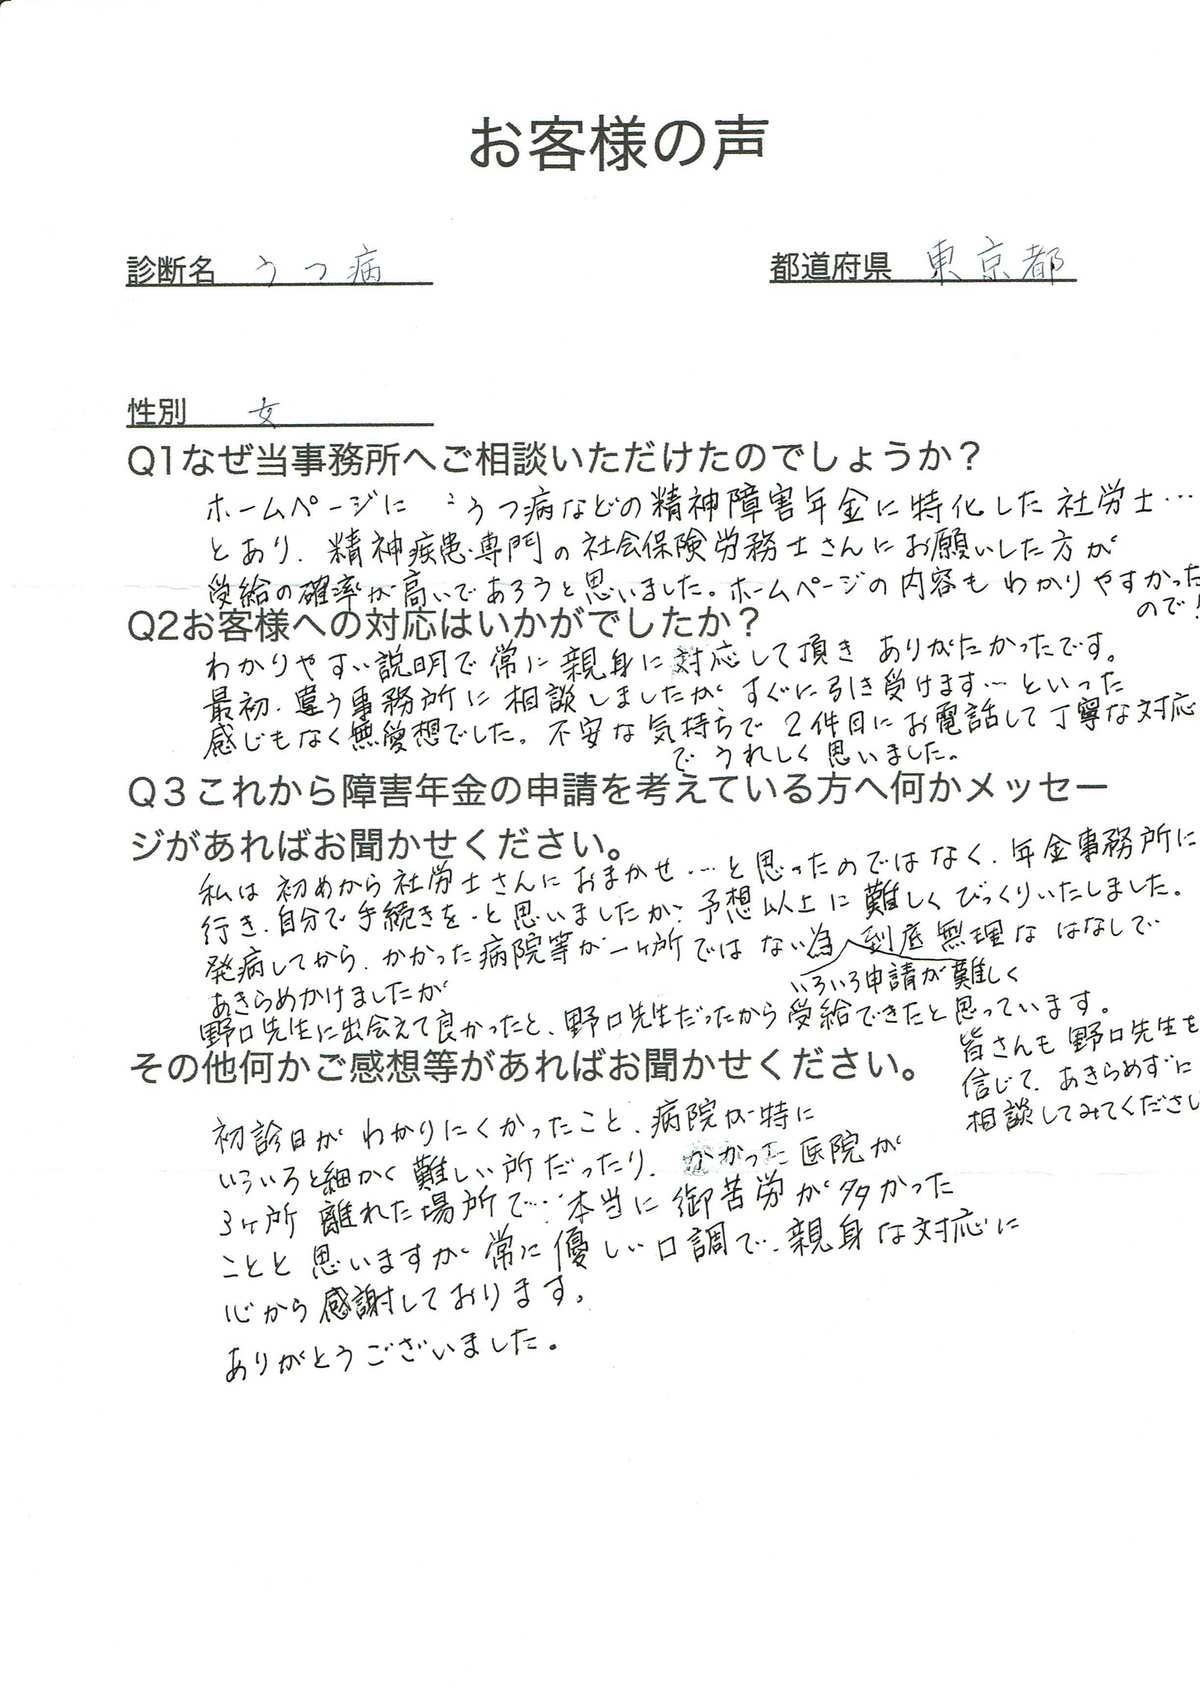 お客様の声
診断名 うつ病
都道府県 東京都
性別 女
Q1なぜ当事務所へご相談いただけたのでしょうか？
ホームページに うつ病などの精神障害年金に特化した社労士…
とあり、精神疾患専門の社会保険労務士さんにお願いした方が
受給の確率が高いであろうと思いました。ホームページの内容も わかりやすかった
ので！
Q2お客様への対応はいかがでしたか？
わかりやすい説明で常に親身に対応して頂き ありがたかったです。
最初、違う事務所に相談しましたが すぐに引き受けます…といった
感じもなく無愛想でした。不安な気持ちで2件目にお電話して丁寧な対応
で うれしく思いました。
Q３これから障害年金の申請を考えている方へ何かメッセー
ジがあればお聞かせください。
私は 初めから社労士さんにおまかせ…と思ったのではなく、年金事務所に
行き、自分で手続きを…と思いましたが、予想以上に難しくびっくりいたしました。
発病してから、かかった病院等が一ヶ所ではない為、到底無理な はなしで
いろいろ申請が難しく
あきらめかけましたが
野口先生に出会えて良かったと、野口先生だったから受給できたと思っています。
皆さんも野口先生を
信じて、あきらめずに
相談してみてください
その他何かご感想等があればお聞かせください。
初診日が わかりにくかったこと、病院が特に
いろいろと細かく難しい所だったり、かかった医院が
3ヶ所 離れた場所で…本当に御苦労が多かった
ことと思いますが常に優しい口調で、親身な対応に
心から感謝しております。
ありがとうございました。